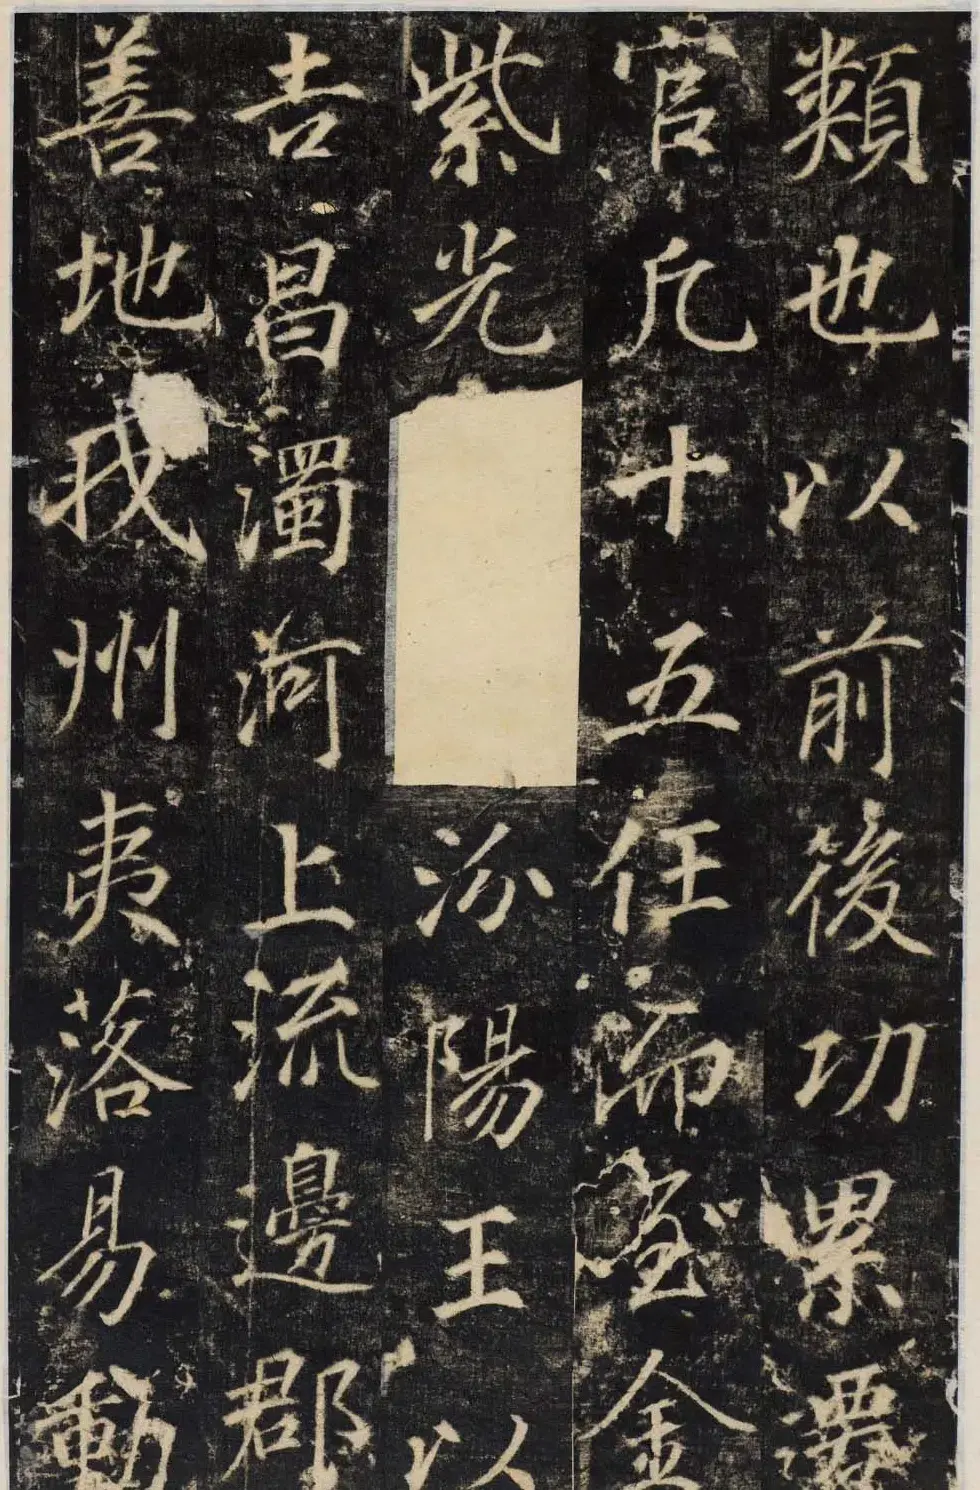 類也以前後功累遷
官凡十五任而金
紫光汾陽王以
吉昌濁河上流邊郡
善地我州夷落易動